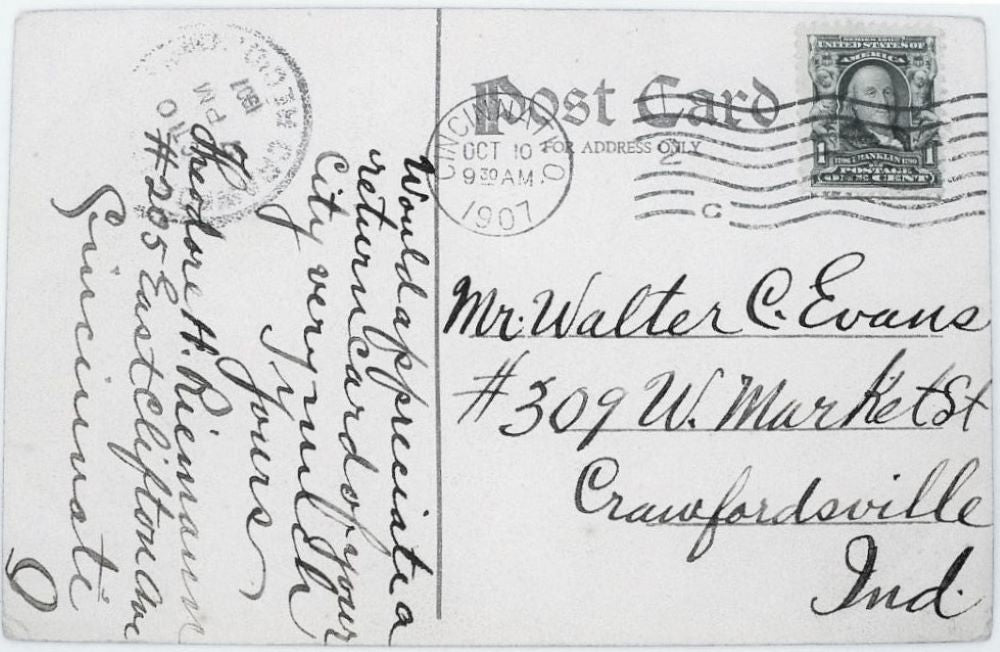 Post Card
FOR ADDRESS ONLY
CINCINNATI, O
OCT 10
9 30 AM
1907
2
C
SERIES 1902
UNITED STATES OF
AMERICA
1
1706 FRANKLIN 1790
1
POSTAGE
ONE CENT
Mr. Walter C. Evans
#309 W. Market St
Crawfordsville
Ind.
Would appreciate a
return card of your
City very much
Yours
Theodore H. Riemann
#205 East Clifton Ave
Cincinnati
O
PM
1907